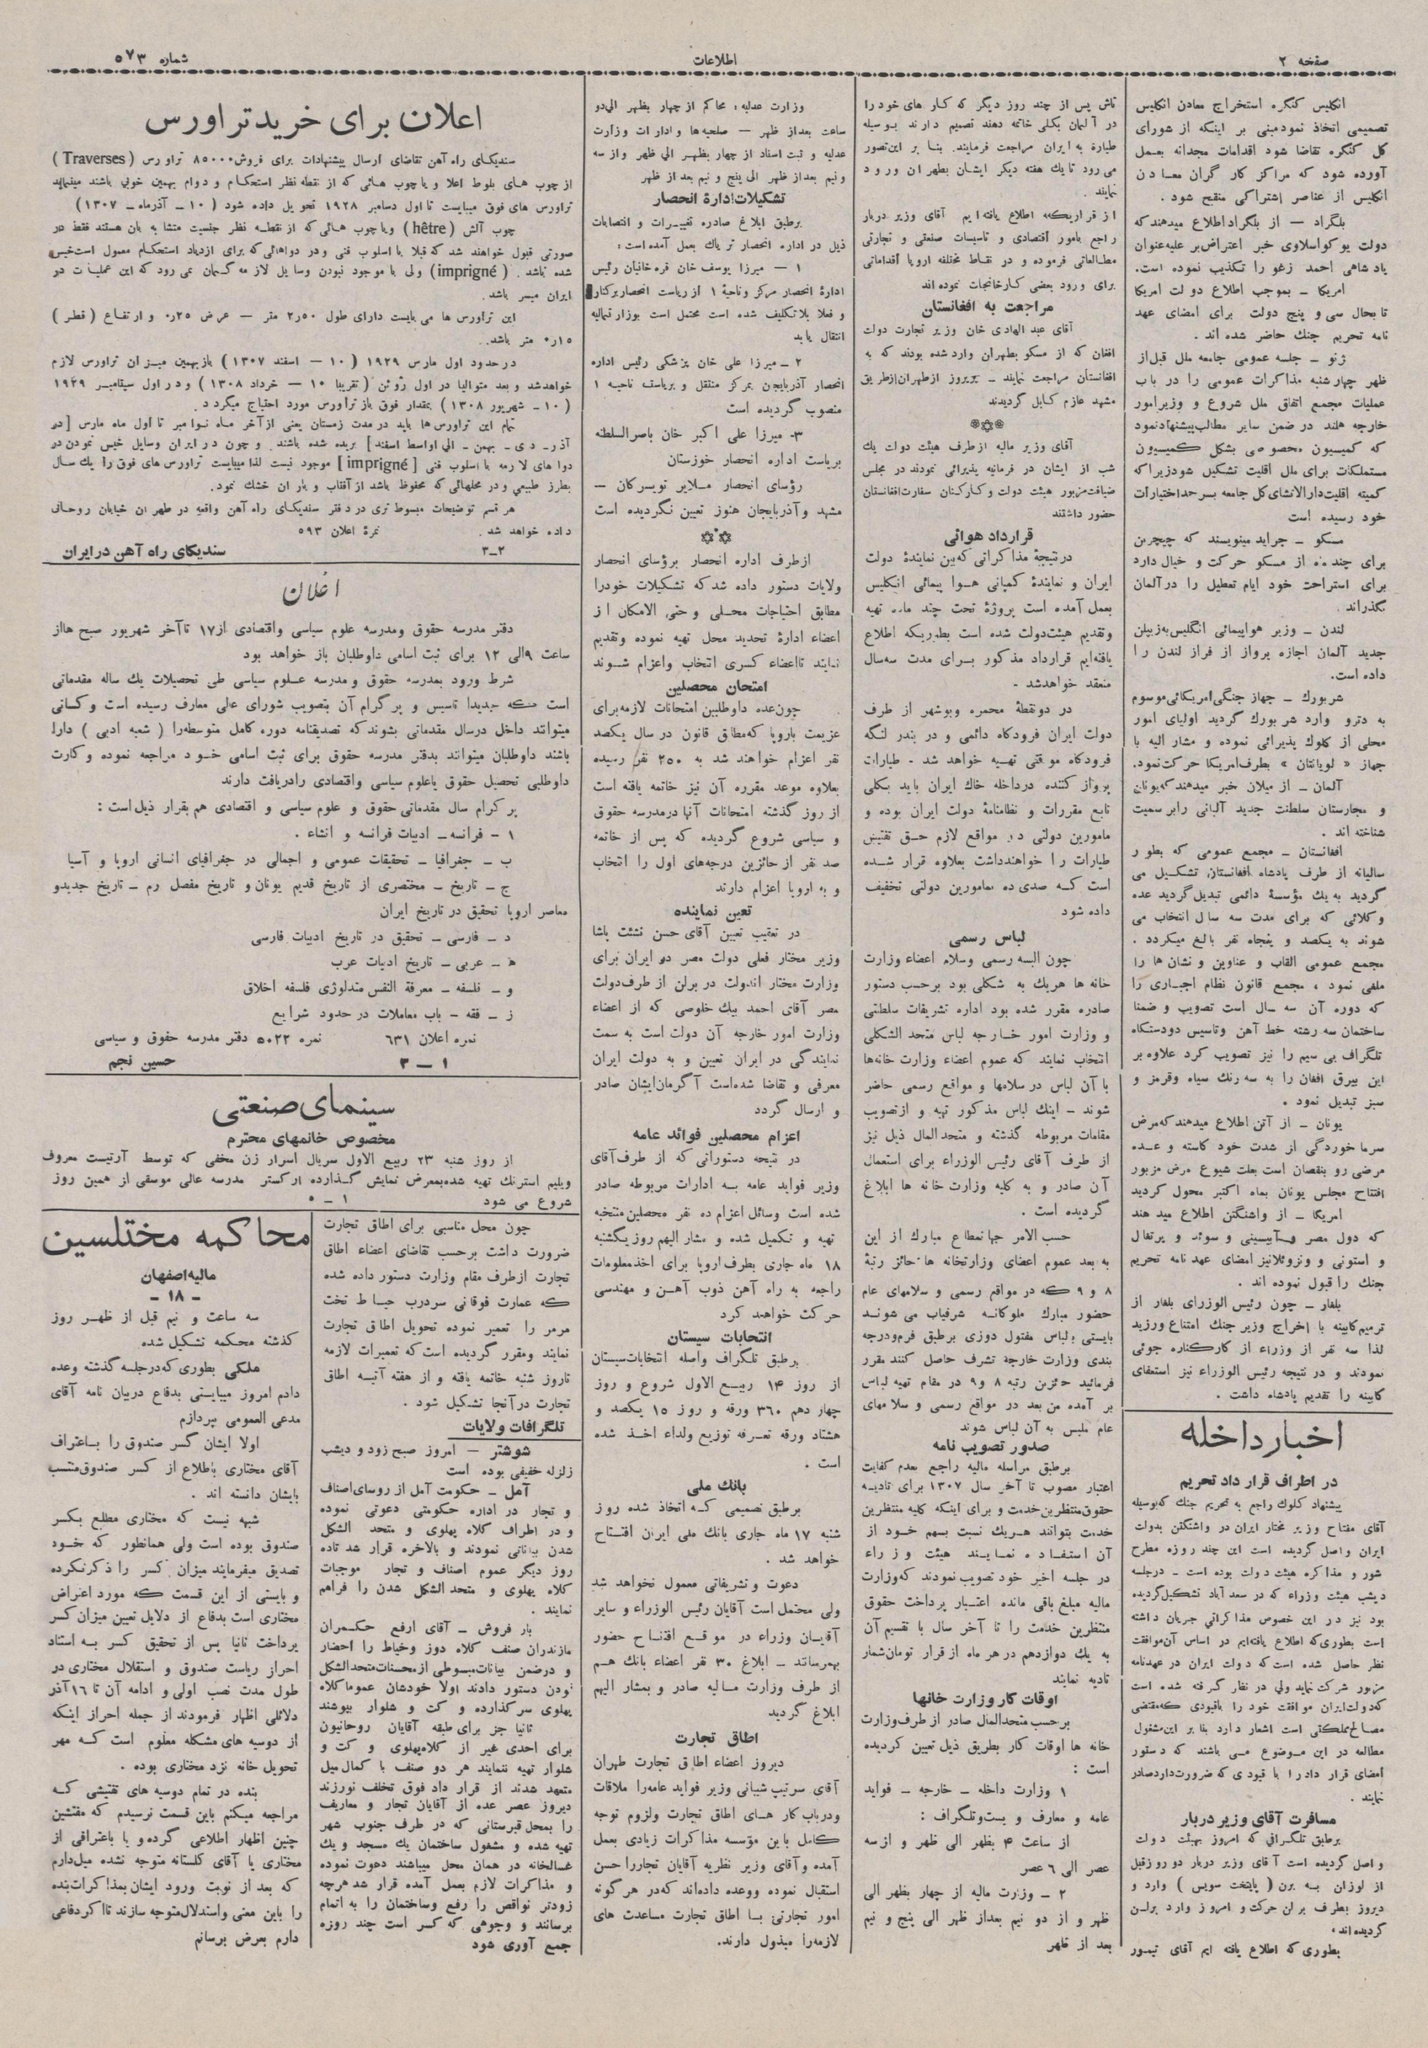 صفحه ۲
اطلاعات
شماره ۵۷۳
انگلیس کنگره استخراج معادن انگلیس
تصمیمی اتخاذ نمود مبنی بر اینکه از شورای
کل کنگره تقاضا شود اقدامات مجدانه بعمل
آورده شود که مراکز کار گران معادن
انگلیس از عناصر اشتراکی منقح شود .
بلگراد — از بلگراد اطلاع میدهند که
دولت یوکواسلاوی خبر اعتراض بر علیه عنوان
پادشاهی احمد زغو را تکذیب نموده است.
امریکا — بموجب اطلاع دولت امریکا
تا بحال سی و پنج دولت برای امضای عهد
نامه تحریم جنك حاضر شده اند .
ژنو — جلسه عمومی جامعه ملل قبل از
ظهر چهار شنبه مذاکرات عمومی را در باب
عملیات مجمع اتفاق ملل شروع و وزیر امور
خارجه هلند در ضمن سایر مطالب پیشنهاد نمود
که کمیسیون مخصوصی بشکل کمیسیون
مستملکات برای ملل اقلیت تشکیل شود زیرا که
کمیته اقلیت دارالانشای کل جامعه بسر حد اختیارات
خود رسیده است
مسکو — جراید مینویسند که چیچرین
برای چند ماه از مسکو حرکت و خیال دارد
برای استراحت خود ایام تعطیل را در آلمان
بگذراند .
لندن — وزیر هواپیمائی انگلیس به زیپلن
جدید آلمان اجازه پرواز از فراز لندن را
داده است.
شربورك — جهاز جنگی امریکائی موسوم
به دترو وارد شربورك گردید اولیای امور
محلی از کلوك پذیرائی نموده و مشار الیه با
جهاز « لویاتان » بطرف امریکا حرکت نمود.
آلمان — از میلان خبر میدهند که یونان
و مجارستان سلطنت جدید آلبانی را برسمیت
شناخته اند .
افغانستان — مجمع عمومی که بطور
سالیانه از طرف پادشاه افغانستان تشکیل می
گردید به یك مؤسسهٔ دائمی تبدیل گردید عده
وکلائی که برای مدت سه سال انتخاب می
شوند به یکصد و پنجاه نفر بالغ میگردد .
مجمع عمومی القاب و عناوین و نشان ها را
ملغی نمود ، مجمع قانون نظام اجباری را
که دوره آن سه سال است تصویب و ضمنا
ساختمان سه رشته خط آهن و تاسیس دو دستگاه
تلگراف بی سیم را نیز تصویب کرد علاوه بر
این بیرق افغان را به سه رنك سیاه و قرمز و
سبز تبدیل نمود .
یونان — از آتن اطلاع میدهند که مرض
سرما خوردگی از شدت خود کاسته و عده
مرضی رو بنقصان است بعلت شیوع مرض مزبور
افتتاح مجلس یونان بماه اکتبر محول گردید
امریکا — از واشنگتن اطلاع میدهند
که دول مصر و آبیسینی و سوئد و پرتقال
و استونی و ونزوئلا نیز امضای عهد نامه تحریم
جنك را قبول نموده اند .
بلغار — چون رئیس الوزرای بلغار از
ترمیم کابینه با اخراج وزیر جنك امتناع ورزید
لذا سه نفر از وزراء از کار کناره جوئی
نمودند و در نتیجه رئیس الوزراء نیز استعفای
کابینه را تقدیم پادشاه داشت .
اخبار داخله
در اطراف قرار داد تحریم
پیشنهاد کلوك راجع به تحریم جنك که بوسیله
آقای مفتاح وزیر مختار ایران در واشنگتن بدولت
ایران واصل گردیده است این چند روزه مطرح
شور و مذاکره هیئت دولت بوده است — در جلسه
دیشب هیئت وزراء که در سعد آباد تشکیل گردیده
بود نیز در این خصوص مذاکراتی جریان داشته
است بطوری که اطلاع یافته ایم در اساس آن موافقت
نظر حاصل شده است که دولت ایران در عهدنامه
مزبور شرکت نماید ولی در نظر گرفته شده است
که دولت ایران موافقت خود را باقیودی که مقتضی
مصالح مملکتی است اشعار دارد بنا بر این مشغول
مطالعه در این موضوع می باشند که دستور
امضای قرار داد را با قیودی که ضرورت دارد صادر
نمایند .
مسافرت آقای وزیر دربار
برطبق تلگرافی که امروز بهیئت دولت
واصل گردیده است آقای وزیر دربار دو روز قبل
از لوزان به برن ( پایتخت سویس ) وارد و
دیروز بطرف برلن حرکت و امروز وارد برلن
گردیده اند.
بطوری که اطلاع یافته ایم آقای تیمور
تاش پس از چند روز دیگر که کار های خود را
در آلمان بکلی خاتمه دهند تصمیم دارند بوسیله
طیاره به ایران مراجعت فرمایند. بنا بر این تصور
می رود تا یك هفته دیگر ایشان بطهران ورود
نمایند
از قراریکه اطلاع یافته ایم آقای وزیر دربار
راجع بامور اقتصادی و تاسیسات صنعتی و تجارتی
مطالعاتی فرموده و در نقاط مختلفه اروپا اقداماتی
برای ورود بعضی کارخانجات نموده اند
مراجعت به افغانستان
آقای عبد الهادی خان وزیر تجارت دولت
افغان که از مسکو بطهران وارد شده بودند که به
افغانستان مراجعت نمایند — پریروز از طهران از طریق
مشهد عازم کابل گردیدند
آقای وزیر مالیه از طرف هیئت دولت یك
شب از ایشان در فرمانیه پذیرائی نمودند در مجلس
ضیافت مزبور هیئت دولت و کارکنان سفارت افغانستان
حضور داشتند
قرارداد هوائی
در نتیجهٔ مذاکراتی که بین نمایندهٔ دولت
ایران و نمایندهٔ کمپانی هوا پیمائی انگلیس
بعمل آمده است پروژهٔ تحت چند ماده تهیه
و تقدیم هیئت دولت شده است بطوریکه اطلاع
یافته ایم قرارداد مذکور برای مدت سه سال
منعقد خواهد شد .
در دو نقطهٔ محمره و بوشهر از طرف
دولت ایران فرودگاه دائمی و در بندر لنگه
فرودگاه موقتی تهیه خواهد شد . طیارات
پرواز کننده در داخله خاك ایران باید بکلی
تابع مقررات و نظامنامهٔ دولت ایران بوده و
مامورین دولتی در مواقع لازم حق تفتیش
طیارات را خواهند داشت بعلاوه قرار شده
است که صدی ده بمامورین دولتی تخفیف
داده شود
لباس رسمی
چون البسه رسمی وسلام اعضاء وزارت
خانه ها هریك به شکلی بود برحسب دستور
صادره مقرر شده بود اداره تشریفات سلطنتی
و وزارت امور خارجه لباس متحد الشکلی
انتخاب نمایند که عموم اعضاء وزارت خانه ها
با آن لباس در سلامها و مواقع رسمی حاضر
شوند — اینك لباس مذکور تهیه و از تصویب
مقامات مربوطه گذشته و متحد المال ذیل نیز
از طرف آقای رئیس الوزراء برای استعمال
آن صادر و به کلیه وزارت خانه ها ابلاغ
گردیده است .
حسب الامر جهانمطاع مبارك از این
به بعد عموم اعضای وزارتخانه ها حائز رتبهٔ
۸ و ۹ که در مواقع رسمی و سلامهای عام
حضور مبارك ملوکانه شرفیاب می شوند
بایستی بلباس مفتول دوزی بر طبق فرم و درجه
بندی وزارت خارجه تشرف حاصل کنند مقرر
فرمائید حائزین رتبه ۸ و ۹ در مقام تهیه لباس
بر آمده من بعد در مواقع رسمی و سلامهای
عام ملبس به آن لباس شوند
صدور تصویب نامه
برطبق مراسله مالیه راجع بعدم کفایت
اعتبار مصوب تا آخر سال ۱۳۰۷ برای تادیه
حقوق منتظرین خدمت و برای اینکه کلیه منتظرین
خدمت بتوانند هریك نسبت بسهم خود از
آن استفاده نمایند هیئت وزراء
در جلسه اخیر خود تصویب نمودند که وزارت
مالیه مبلغ باقی مانده اعتبار پرداخت حقوق
منتظرین خدمت را تا آخر سال با تقسیم آن
به یك دوازدهم در هر ماه از قرار تومان شمار
تادیه نمایند
اوقات کار وزارت خانها
برحسب متحدالمال صادر از طرف وزارت
خانه ها اوقات کار بطریق ذیل تعیین گردیده
است :
۱ وزارت داخله — خارجه — فواید
عامه و معارف و پست و تلگراف :
از ساعت ۴ بظهر الی ظهر و از سه
عصر الی ۶ عصر
۲ — وزارت مالیه از چهار بظهر الی
ظهر و از دو نیم بعداز ظهر الی پنج و نیم
بعد از ظهر
وزارت عدلیه: محاکم از چهار بظهر الی دو
ساعت بعداز ظهر — صلحیه ها و ادارات وزارت
عدلیه و ثبت اسناد از چهار بظهر الی ظهر و از سه
و نیم بعداز ظهر الی پنج و نیم بعد از ظهر
تشکیلات ادارهٔ انحصار
برطبق ابلاغ صادره تغییرات و انتصابات
ذیل در اداره انحصار تریاك بعمل آمده است :
۱ — میرزا یوسف خان قره خانیان رئیس
ادارهٔ انحصار مرکز و ناحیهٔ ۱ از ریاست انحصار برکنار
و فعلا بلاتکلیف شده است محتمل است بوزار تمالیه
انتقال یابد
۲ — میرزا علی خان پزشکی رئیس اداره
انحصار آذربایجان بمرکز منتقل و بریاست ناحیه ۱
منصوب گردیده است
۳- میرزا علی اکبر خان ناصر السلطنه
بریاست اداره انحصار خوزستان
رؤسای انحصار ملایر تویسرکان —
مشهد و آذربایجان هنوز تعیین نگردیده است
از طرف اداره انحصار برؤسای انحصار
ولایات دستور داده شد که تشکیلات خود را
مطابق احتیاجات محلی و حتی الامکان از
اعضاء ادارهٔ تحدید محل تهیه نموده و تقدیم
نمایند تا اعضاء کسری انتخاب و اعزام شوند
امتحان محصلین
چون عده داوطلبین امتحانات لازمه برای
عزیمت باروپا که مطابق قانون در سال یکصد
نفر اعزام خواهند شد به ۲۵۰ نفر رسیده
بعلاوه موعد مقرره آن نیز خاتمه یافته است
از روز گذشته امتحانات آنها در مدرسه حقوق
و سیاسی شروع گردیده که پس از خاتمه
صد نفر از حائزین درجه های اول را انتخاب
و به اروپا اعزام دارند
تعین نماینده
در تعقیب تعین آقای حسن نشئت پاشا
وزیر مختار فعلی دولت مصر در ایران برای
وزارت مختار آندولت در برلن از طرف دولت
مصر آقای احمد بیك خلوصی که از اعضاء
وزارت امور خارجه آن دولت است به سمت
نمایندگی در ایران تعیین و به دولت ایران
معرفی و تقاضا شده است آگرمان ایشان صادر
و ارسال گردد
اعزام محصلین فوائد عامه
در نتیجه دستوراتی که از طرف آقای
وزیر فواید عامه به ادارات مربوطه صادر
شده است وسائل اعزام ده نفر محصلین منتخبه
تهیه و تکمیل شده و مشار الیهم روز یکشنبه
۱۸ ماه جاری بطرف اروپا برای اخذ معلومات
راجعه به راه آهن ذوب آهن و مهندسی
حرکت خواهند کرد
انتخابات سیستان
برطبق تلگراف واصله انتخابات سیستان
از روز ۱۴ ربیع الاول شروع و روز
چهاردهم ۳۶۰ ورقه و روز ۱۵ یکصد و
هشتاد ورقه تعرفه توزیع ولداء اخذ شده
است .
بانك ملی
برطبق تصمیمی که اتخاذ شده روز
شنبه ۱۷ ماه جاری بانك ملی ایران افتتاح
خواهد شد .
دعوت و تشریفاتی معمول نخواهد شد
ولی محتمل است آقایان رئیس الوزراء و سایر
آقایان وزراء در موقع افتتاح حضور
بهمرسانند — ابلاغ ۳۰ نفر اعضاء بانك هم
از طرف وزارت مالیه صادر و بمشار الیهم
ابلاغ گردید
اطاق تجارت
دیروز اعضاء اطاق تجارت طهران
آقای سرتیپ شیبانی وزیر فواید عامه را ملاقات
و درباب کار های اطاق تجارت و لزوم توجه
کامل باین مؤسسه مذاکرات زیادی بعمل
آمده و آقای وزیر نظریه آقایان تجار را حسن
استقبال نموده و وعده داده اند که در هر گونه
امور تجارتی با اطاق تجارت مساعدت های
لازمه را مبذول دارند.
اعلان برای خرید تراورس
سندیکای راه آهن تقاضای ارسال پیشنهادات برای فروش ۸۵۰۰۰ تراورس (Traverses)
از چوب های بلوط اعلا و یا چوب هائی که از نقطه نظر استحکام و دوام بهمین خوبی باشند مینماید
تراورس های فوق میبایست تا اول دسامبر ۱۹۲۸ تحویل داده شود ( ۱۰ — آذرماه — ۱۳۰۷ )
چوب آلش (hêtre) ویا چوب هائی که از نقطه نظر جنسیت متشابه بان هستند فقط در
صورتی قبول خواهند شد که قبلا با اسلوب فنی و در دواهائی که برای ازدیاد استحکام معمول است خیس
شده باشد . (imprigné) ولی با موجود نبودن وسایل لازمه گمان نمی رود که این عملیات در
ایران میسر باشد .
این تراورس ها می بایست دارای طول ۲٫۵۰ متر — عرض ۰٫۲۵ و ارتفاع ( قطر )
۰٫۱۵ متر باشد.
در حدود اول مارس ۱۹۲۹ (۱۰ — اسفند ۱۳۰۷) باز بهمین میزان تراورس لازم
خواهد شد و بعد متوالیا در اول ژوئن (تقریبا ۱۰ — خرداد ۱۳۰۸) و در اول سپتامبر ۱۹۲۹
(۱۰ — شهریور ۱۳۰۸) بمقدار فوق باز تراورس مورد احتیاج میگردد .
تمام این تراورس ها باید در مدت زمستان یعنی از آخر ماه نوامبر تا اول ماه مارس [در
آذر- دی — بهمن — الی اواسط اسفند] بریده شده باشند . و چون در ایران وسایل خیس نمودن در
دوا های لازمه با اسلوب فنی [imprigné] موجود نیست لذا میبایست تراورس های فوق را یك سال
بطرز طبیعی و در محلهائی که محفوظ باشد از آفتاب و باران خشك نمود.
هر قسم توضیحات مبسوط تری در دفتر سندیکای راه آهن واقعه در طهران خیابان روحانی
داده خواهد شد . نمرهٔ اعلان ۵۹۳
۲ــ۳ سندیکای راه آهن در ایران
اعلان
دفتر مدرسه حقوق و مدرسه علوم سیاسی و اقتصادی از ۱۷ تا آخر شهریور صبح ها از
ساعت ۹ الی ۱۲ برای ثبت اسامی داوطلبان باز خواهد بود
شرط ورود بمدرسه حقوق و مدرسه علوم سیاسی طی تحصیلات یك ساله مقدماتی
است که جدیدا تاسیس و پرگرام آن بتصویب شورای عالی معارف رسیده است و کسانی
میتوانند داخل در سال مقدماتی بشوند که تصدیقنامه دوره کامل متوسطه را ( شعبه ادبی ) دارا
باشند داوطلبان میتوانند بدفتر مدرسه حقوق برای ثبت اسامی خود مراجعه نموده و کارت
داوطلبی تحصیل حقوق یا علوم سیاسی و اقتصادی را دریافت دارند
پرگرام سال مقدماتی حقوق و علوم سیاسی و اقتصادی هم بقرار ذیل است :
۱ — فرانسه — ادبیات فرانسه و انشاء .
ب — جغرافیا — تحقیقات عمومی و اجمالی در جغرافیای انسانی اروپا و آسیا
ج — تاریخ — مختصری از تاریخ قدیم یونان و تاریخ مفصل رم — تاریخ جدید و
معاصر اروپا تحقیق در تاریخ ایران
د — فارسی — تحقیق در تاریخ ادبیات فارسی
ه — عربی — تاریخ ادبیات عرب
و — فلسفه — معرفة النفس متدلوژی فلسفه اخلاق
ز — فقه — باب معاملات در حدود شرایع
نمره اعلان ۶۳۱ نمره ۵۰۲۲ دفتر مدرسه حقوق و سیاسی
۱ — ۳ حسین نجم
سینمای صنعتی
مخصوص خانمهای محترم
از روز شنبه ۲۳ ربیع الاول سریال اسرار زن مخفی که توسط آرتیست معروف
ویلیم استرنك تهیه شده بمعرض نمایش گذارده ارکستر مدرسه عالی موسقی از همین روز
شروع می شود ۱ — ۵
چون محل مناسبی برای اطاق تجارت
ضرورت داشت برحسب تقاضای اعضاء اطاق
تجارت از طرف مقام وزارت دستور داده شده
که عمارت فوقانی سردرب حیاط تخت
مرمر را تعمیر نموده تحویل اطاق تجارت
نمایند و مقرر گردیده است که تعمیرات لازمه
تا روز شنبه خاتمه یافته و از هفته آتیه اطاق
تجارت در آنجا تشکیل شود .
تلگرافات ولایات
شوشتر — امروز صبح زود و دیشب
زلزله خفیفی بوده است
آمل — حکومت آمل از روسای اصناف
و تجار در اداره حکومتی دعوتی نموده
و در اطراف کلاه پهلوی و متحد الشکل
شدن بیاناتی نمودند و بالاخره قرار شد تا ده
روز دیگر عموم اصناف و تجار موجبات
کلاه پهلوی و متحد الشکل شدن را فراهم
نمایند .
بار فروش — آقای ارفع حکمران
مازندران صنف کلاه دوز و خیاط را احضار
و در ضمن بیانات مبسوطی از محسنات متحد الشکل
بودن دستور دادند اولا خودشان عموما کلاه
پهلوی سر گذارده و کت و شلوار بپوشند
ثانیا جز برای طبقه آقایان روحانیون
برای احدی غیر از کلاه پهلوی و کت و
شلوار تهیه ننمایند هر دو صنف با کمال میل
متعهد شدند از قرار داد فوق تخلف نورزند
دیروز عصر عده از آقایان تجار و معاریف
را بمحل قبرستانی که در طرف جنوب شهر
تهیه شده و مشغول ساختمان یك مسجد و یك
غسالخانه در همان محل میباشند دعوت نموده
و مذاکرات لازم بعمل آمده قرار شد هر چه
زودتر نواقص را رفع و ساختمان را به اتمام
برسانند و وجوهی که کسر است چند روزه
جمع آوری شود
محاکمه مختلسین
مالیه اصفهان
— ۱۸ —
سه ساعت و نیم قبل از ظهر روز
گذشته محکمه تشکیل شده
ملکی بطوری که در جلسه گذشته وعده
دادم امروز میبایستی بدفاع در بیان نامه آقای
مدعی العمومی بپردازم
اولا ایشان کسر صندوق را باعتراف
آقای مختاری باطلاع از کسر صندوق منتسب
بایشان دانسته اند .
شبهه نیست که مختاری مطلع بکسر
صندوق بوده است ولی همانطور که خود
تصدیق میفرمایند میزان کسر را ذکر نکرده
و بایستی از این قسمت که مورد اعتراض
مختاری است بدفاع از دلایل تعیین میزان کسر
پرداخت ثانیا پس از تحقیق کسر به استناد
احراز ریاست صندوق و استقلال مختاری در
طول مدت نصب اولی و ادامه آن تا ۱۶ آذر
دلائلی اظهار فرمودند از جمله احراز اینکه
از دوسیه های مشکله معلوم است که مهر
تحویل خانه نزد مختاری بوده .
بنده در تمام دوسیه های تفتیشی که
مراجعه میکنم باین قسمت نرسیدم که مفتشین
چنین اظهار اطلاعی کرده و یا باعترافی از
مختاری یا آقای گلستانه متوجه نشده میل دارم
که بعد از نوبت ورود ایشان بمذاکرات بنده
را باین معنی و استدلال متوجه سازند تا اگر دفاعی
دارم بعرض برسانم